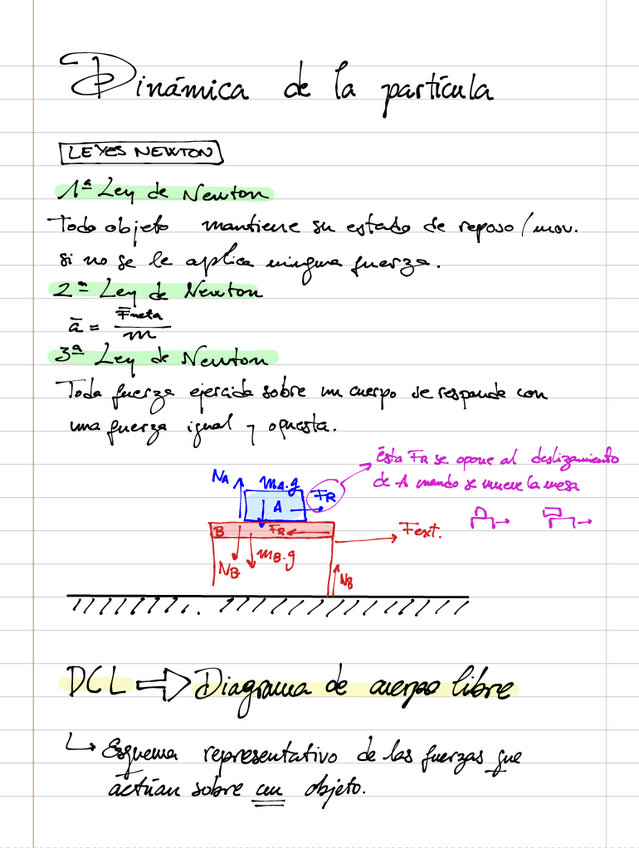 Dinámica de la partícula
LEYES NEWTON
1ª Ley de Newton
Todo objeto mantiene su estado de reposo / mov.
si no se le aplica ninguna fuerza.
2ª Ley de Newton
a̅ = F̅neta / m
3ª Ley de Newton
Toda fuerza ejercida sobre un cuerpo se responde con
una fuerza igual y opuesta.
ésta FR se opone al deslizamiento
de A cuando se mueve la mesa
NA mA.g FR
A
B FR
Fext.
NB mB.g NB
DCL ⇒ Diagrama de cuerpo libre
↳ Esquema representativo de las fuerzas que
actúan sobre un objeto.